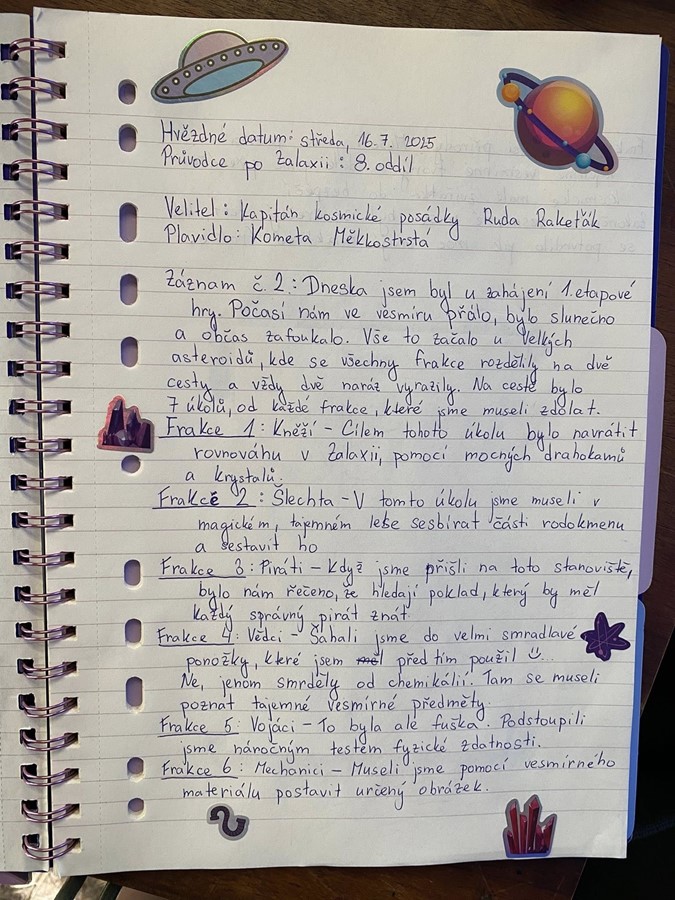 Hvězdné datum: středa, 16.7. 2025
Průvodce po Galaxii : 8. oddíl
Velitel : Kapitán kosmické posádky Ruda Raketřák
Plavidlo: Kometa Měkkostrstá
Záznam č. 2 : Dneska jsem byl u zahájení 1. etapové
hry. Počasí nám ve vesmíru přálo, bylo slunečno
a občas zafoukalo. Vše to začalo u Velkých
asteroidů, kde se všechny frakce rozdělily na dvě
cesty a vždy dvě naráz vyrazily. Na cestě bylo
7 úkolů, od každé frakce, které jsme museli zdolat.
Frakce 1 : Kněží - Cílem tohoto úkolu bylo navrátit
rovnováhu v Galaxii, pomocí mocných drahokamů
a krystalů.
Frakce 2 : Šlechta - V tomto úkolu jsme museli v
magickém, tajemném lese sesbírat části rodokmenu
a sestavit ho
Frakce 3 : Piráti - Když jsme přišli na toto stanoviště,
bylo nám řečeno, že hledají poklad, který by měl
každý správný pirát znát.
Frakce 4 : Vědci - Šahali jsme do velmi smradlavé
ponožky, které jsem předtím použil :)...
Ne, jenom smrděly od chemikálií. Tam se museli
poznat tajemné vesmírné předměty.
Frakce 5 : Vojáci - To byla ale fuška. Podstoupili
jsme náročným testem fyzické zdatnosti.
Frakce 6 : Mechanici - Museli jsme pomocí vesmírného
materiálu postavit určený obrázek.